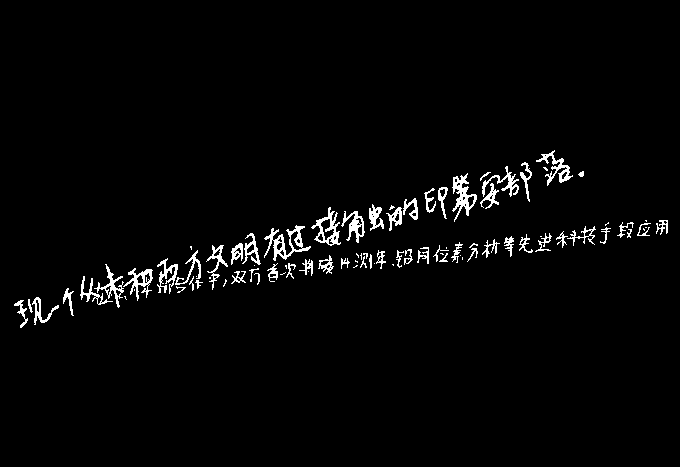 现一个从未和西方文明有过接触的印第安部落。
合作中,双方首次将碳14测年、铅同位素分析等先进科技手段应用